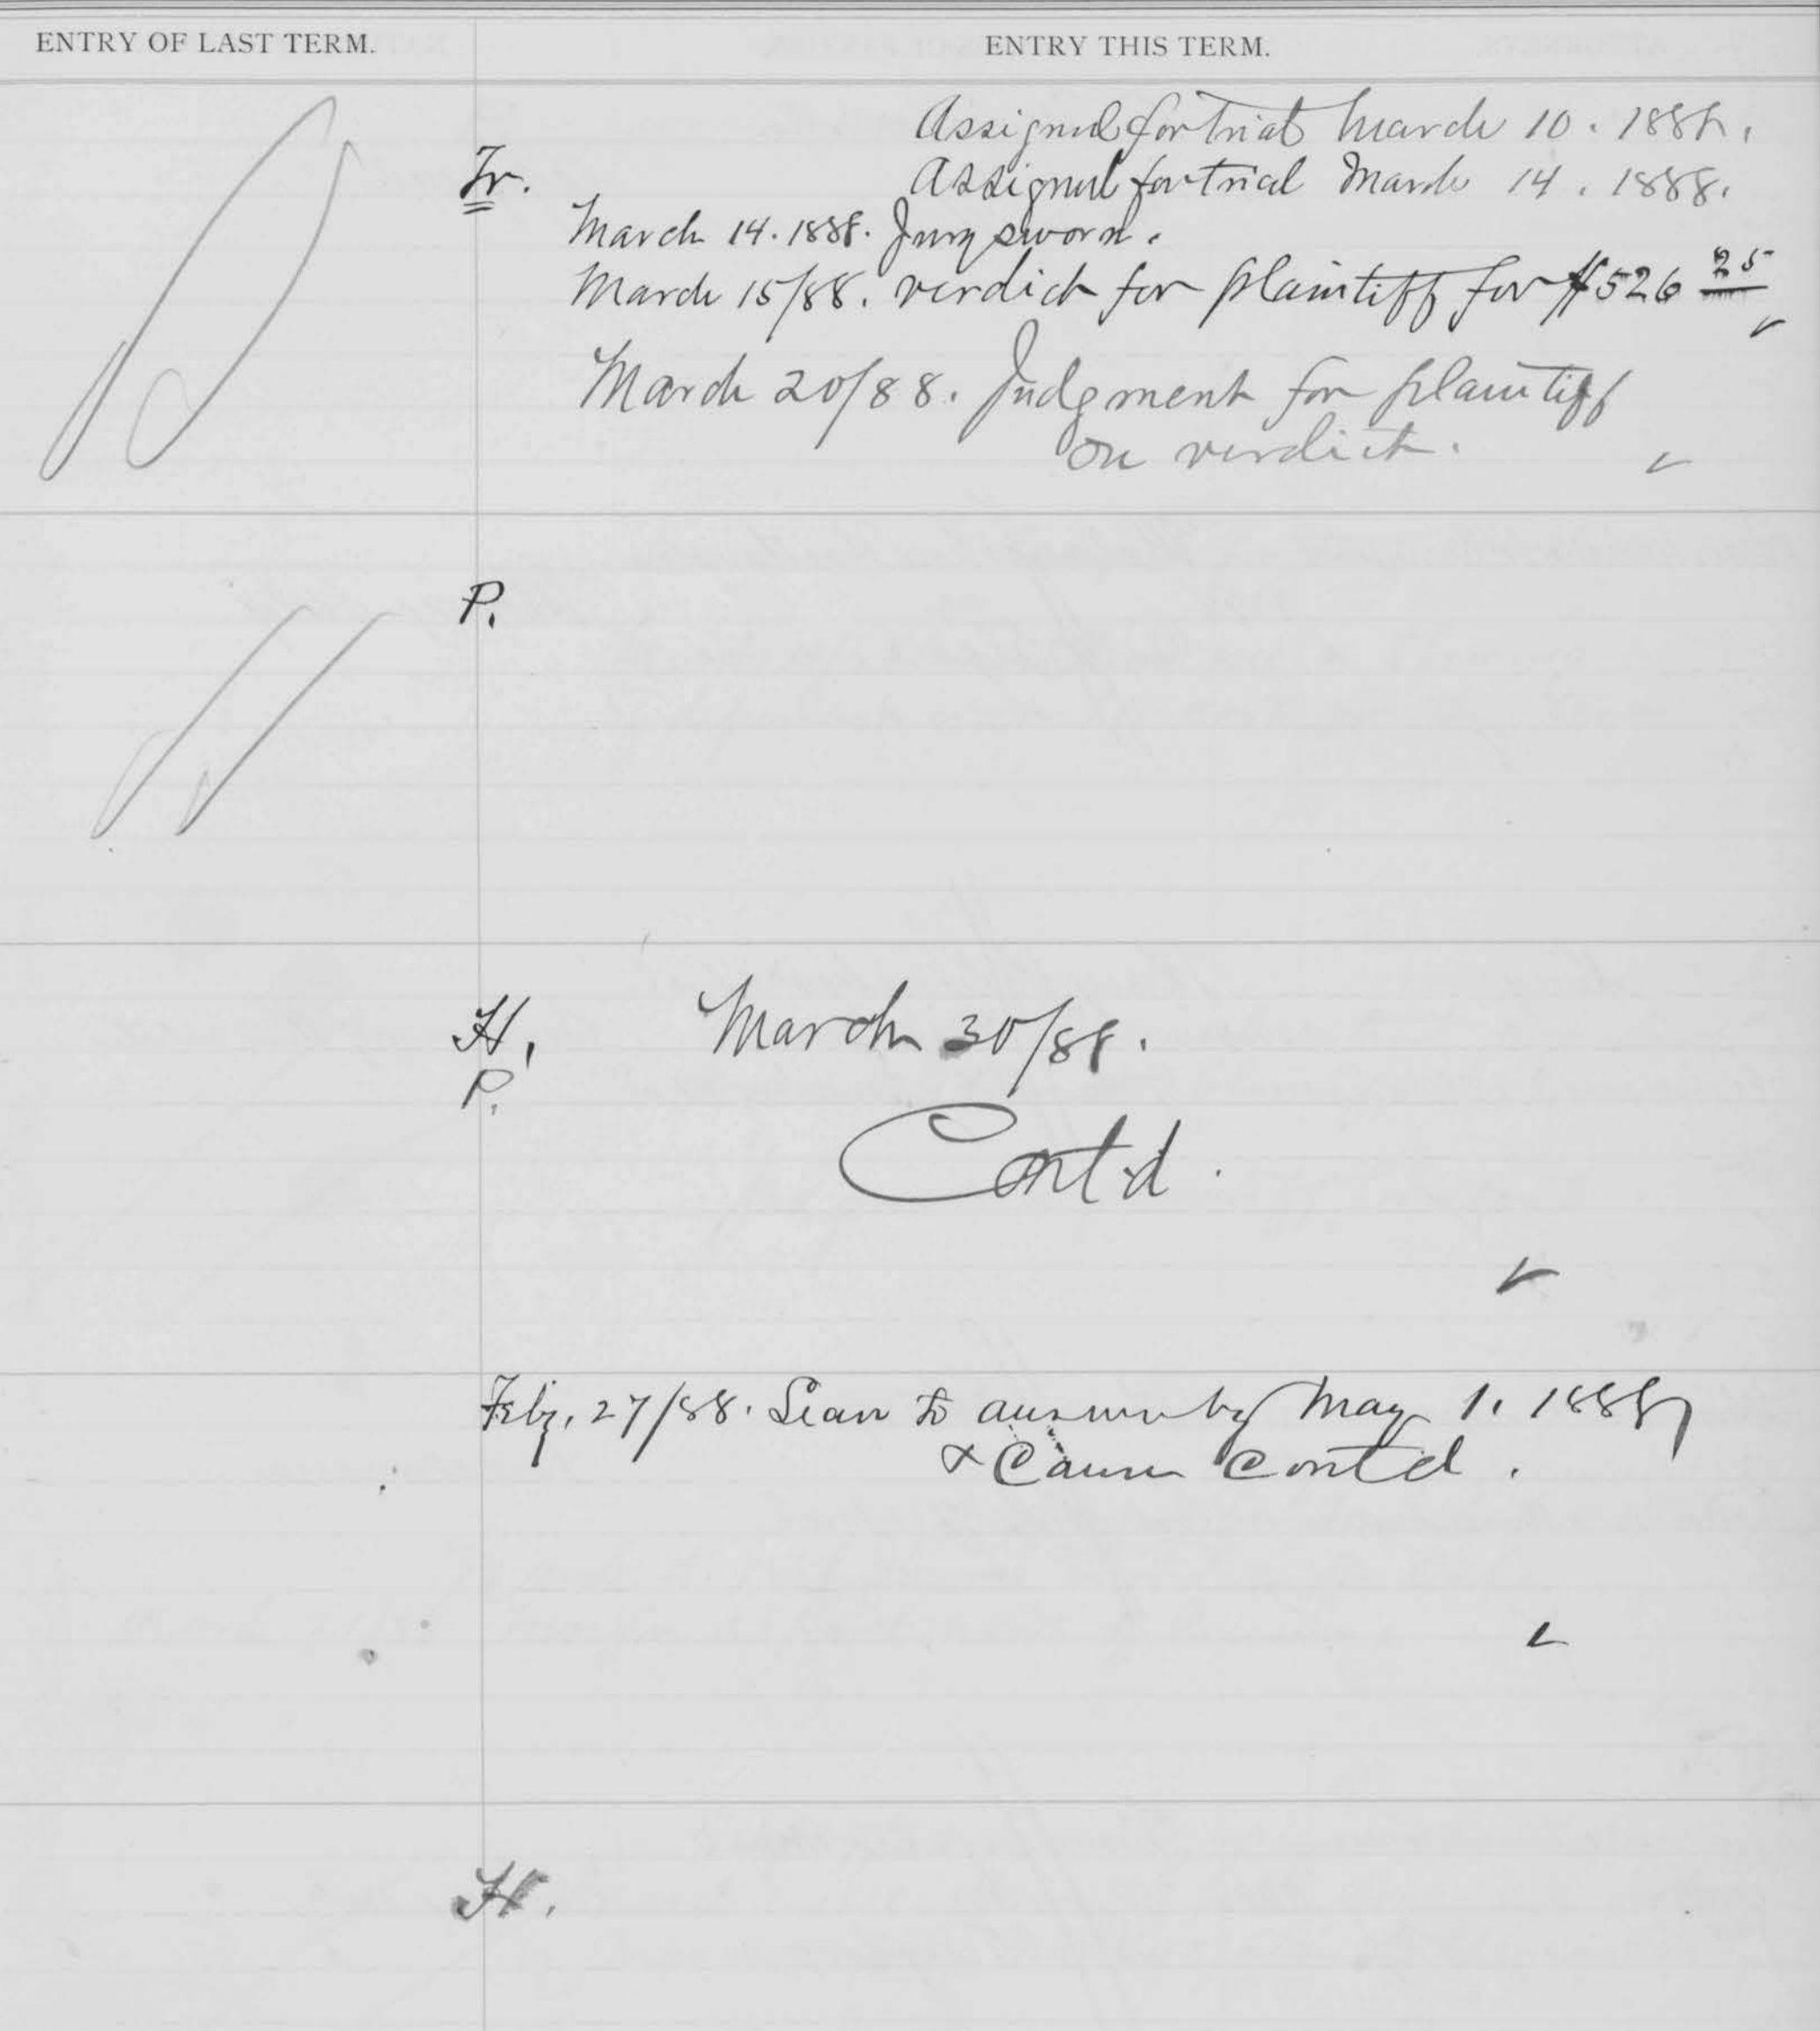 ENTRY OF LAST TERM.
ENTRY THIS TERM.
Assigned for trial March 10. 1888.
Tr.
Assigned for trial March 14. 1888.
March 14. 1888. Jury sworn.
March 15/88. verdict for plaintiff for $526 25
March 20/88. Judgment for plaintiff
on verdict.
P.
H.
March 30/88.
P.
Cont'd.
Feby. 27/88. Leave to answer by May 1. 1888
& Cause Contd.
H.